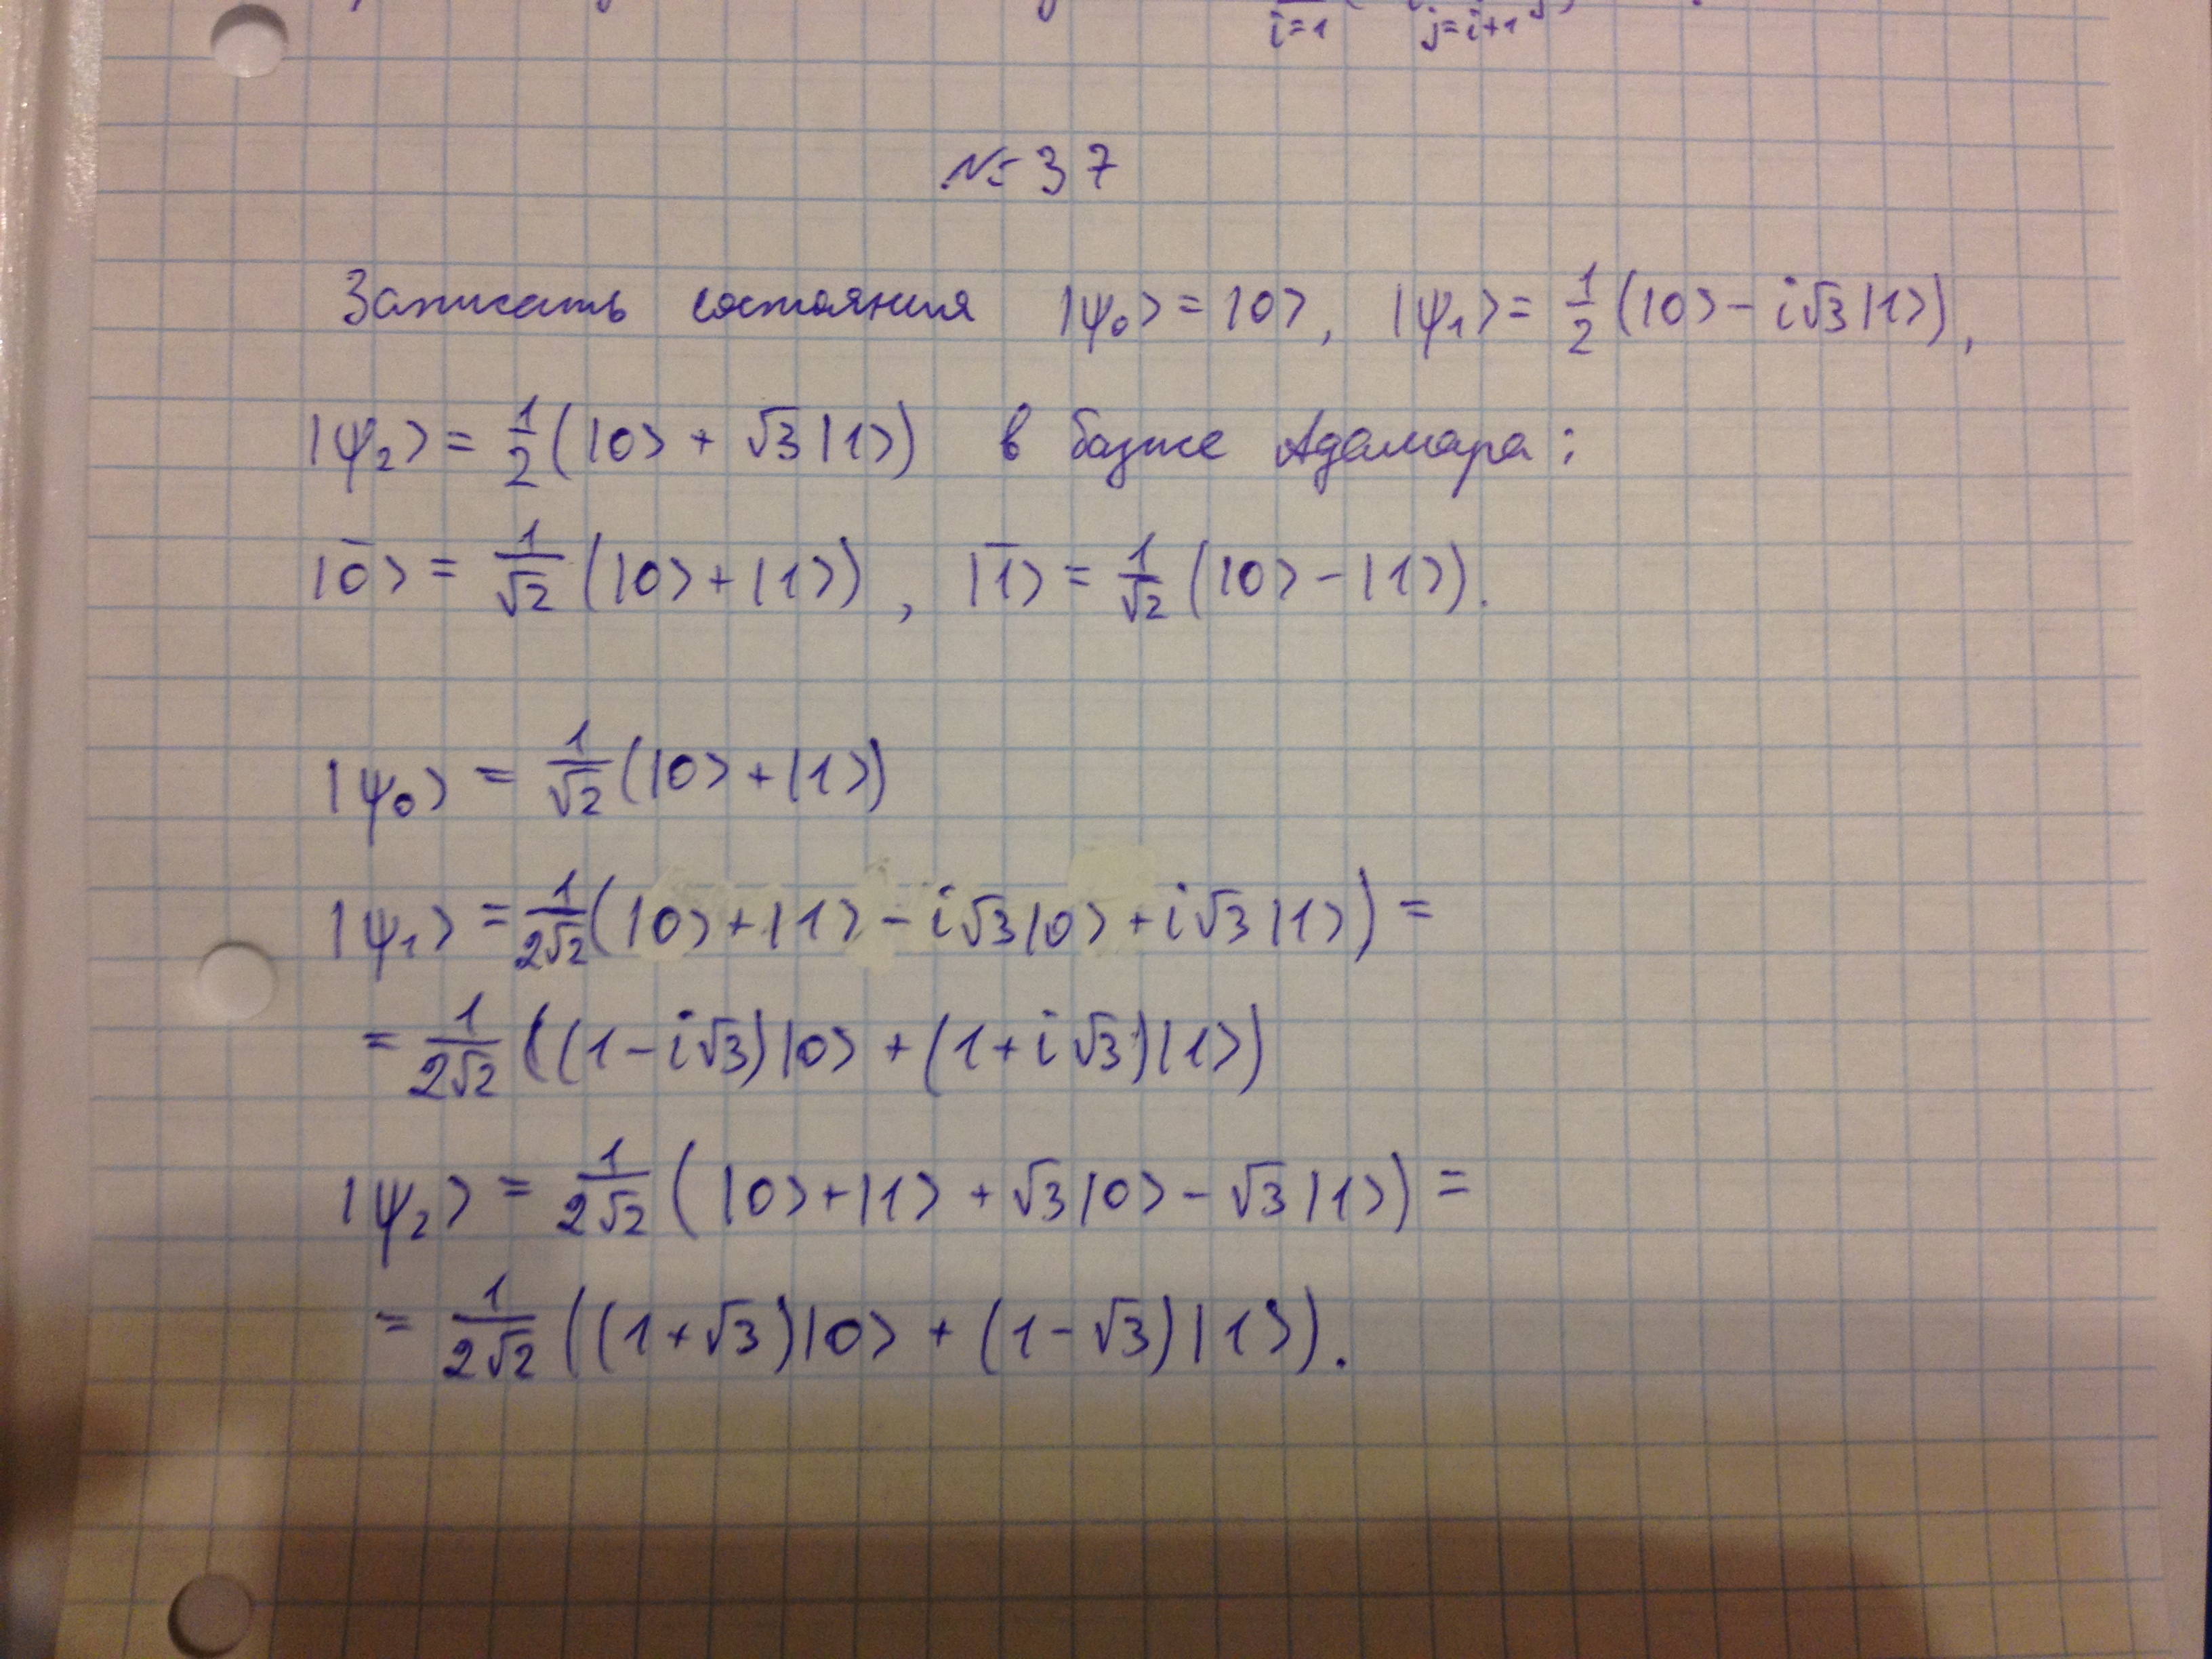 i=1 j=i+1
№ 37
Записать состояния |ψ₀> = |0>, |ψ₁> = 1/2 (|0> - i√3|1>),
|ψ₂> = 1/2 (|0> + √3|1>) в базисе Адамара:
|0̅> = 1/√2 (|0> + |1>), |1̅> = 1/√2 (|0> - |1>).
|ψ₀> = 1/√2 (|0> + |1>)
|ψ₁> = 1/2√2 (|0> + |1> - i√3|0> + i√3|1>) =
= 1/2√2 ((1 - i√3)|0> + (1 + i√3)|1>)
|ψ₂> = 1/2√2 (|0> + |1> + √3|0> - √3|1>) =
= 1/2√2 ((1 + √3)|0> + (1 - √3)|1>).